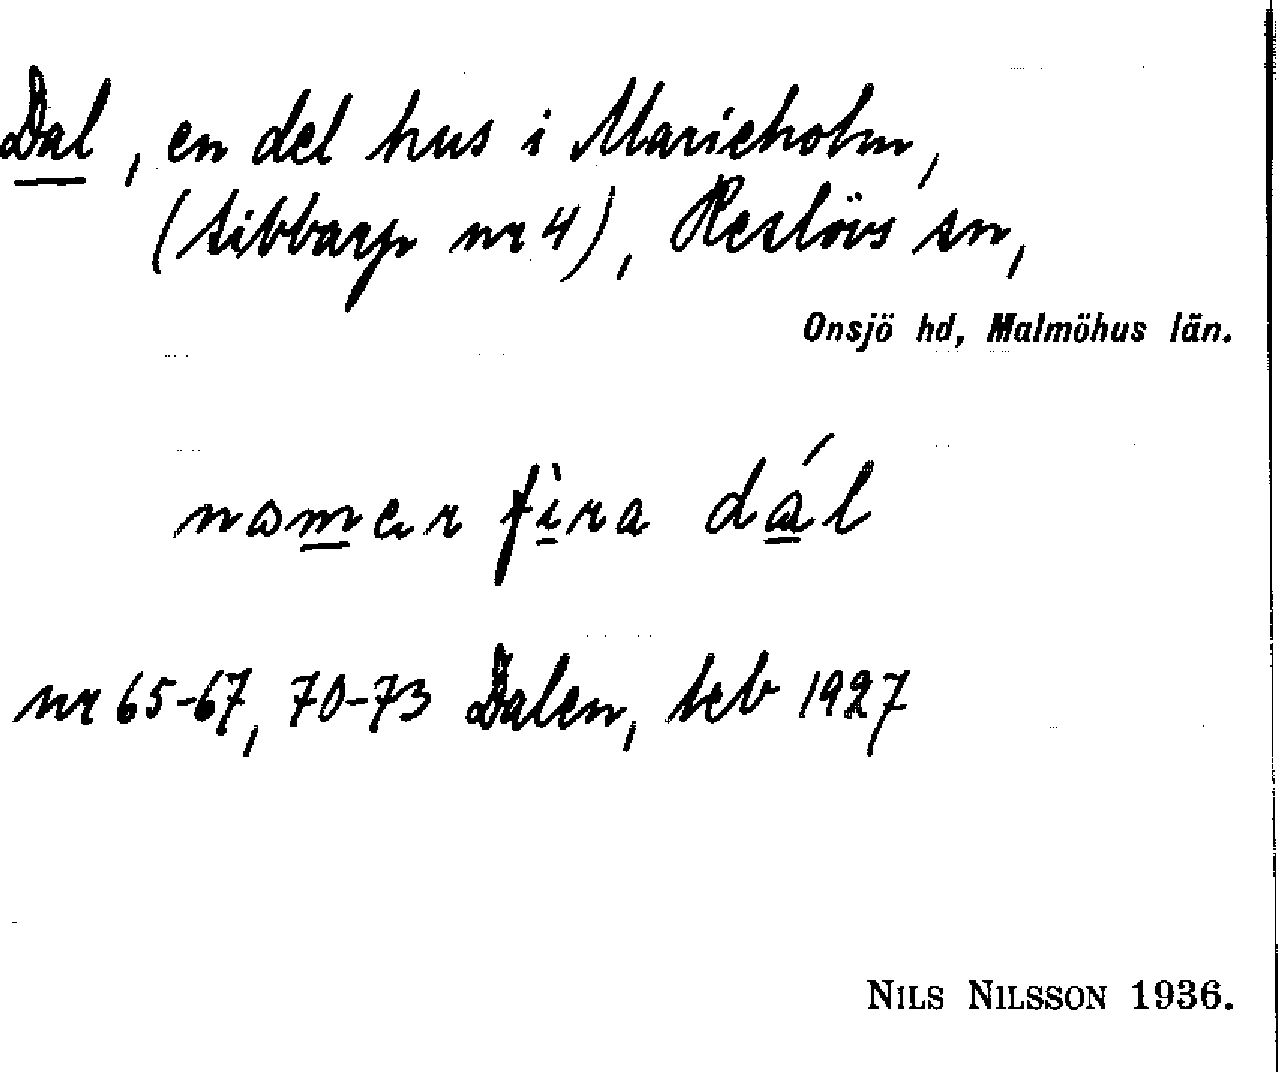 Dal, en del hus i Marieholm,
(Sibbarp nr 4), Reslövs sn,
Onsjö hd, Malmöhus län.
nomer fìra dál
nr 65-67, 70-73 Dalen, teb 1927
NILS NILSSON 1936.